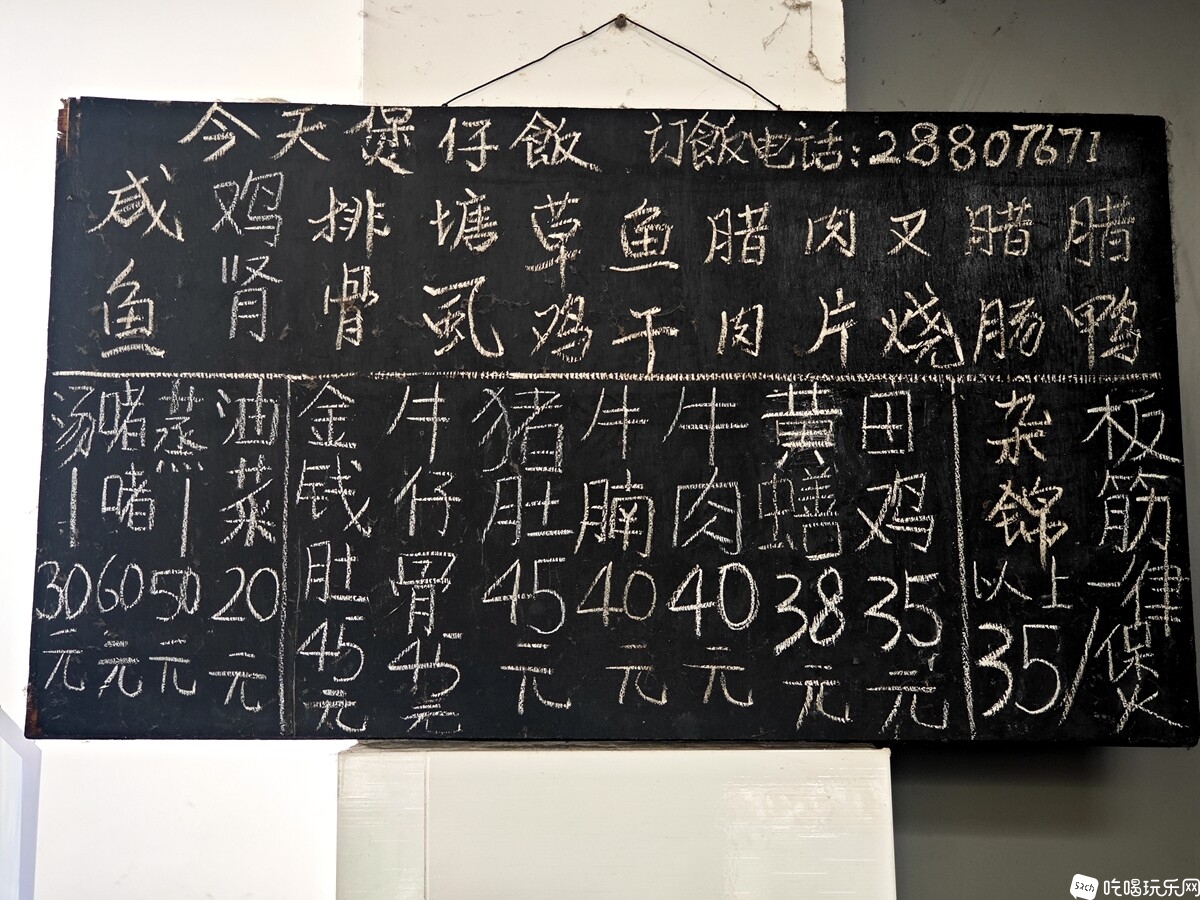 今天煲仔飯 订飯电话:28807671
咸鱼
鸡肾
排骨
塘虱
草鸡
鱼干
腊肉
肉片
叉烧
腊肠
腊鸭
汤 30元
啫啫 60元
蒸 50元
油菜 20元
金钱肚 45元
牛仔骨 45元
猪肚 45元
牛腩 40元
牛肉 40元
黄鳝 38元
田鸡 35元
杂锦 板筋
以上一律
35/煲
吃喝玩乐网